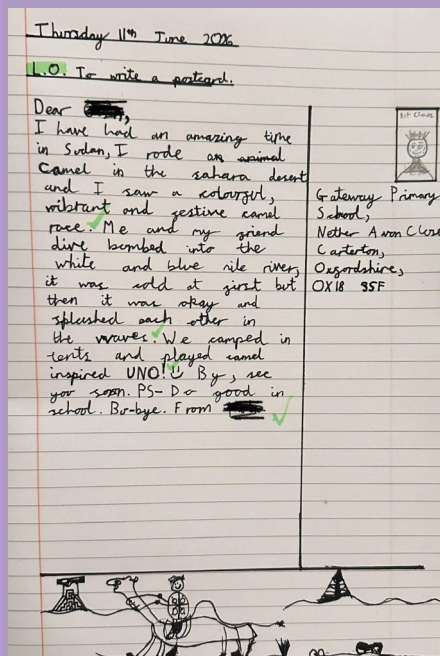 Thursday 11th June 2026
L.O. To write a postcard.
Dear
I have had an amazing time
in Sudan, I rode an animal
Camel in the sahara desert
and I saw a colourful,
vibrant and festive camel
race. Me and my friend
dive bombed into the
white and blue nile river,
it was cold at first but
then it was okay and
splushed each other in
the waves. We camped in
tents and played camel
inspired UNO! By, see
you soon. PS- Do good in
school. Bo-bye. From
Gateway Primary
School,
Nether Avon Close
Carterton,
Oxfordshire,
OX18